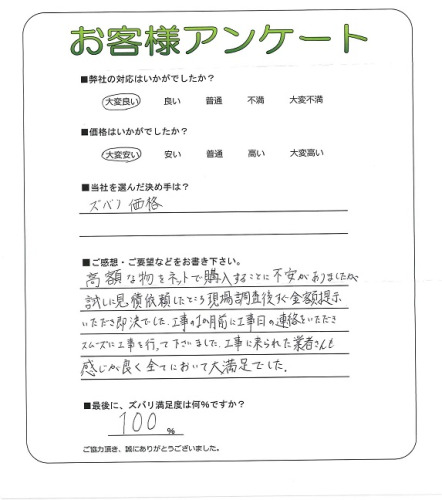 お客様アンケート
■弊社の対応はいかがでしたか?
大変良い 良い 普通 不満 大変不満
■価格はいかがでしたか?
大変安い 安い 普通 高い 大変高い
■当社を選んだ決め手は?
ズバリ価格
■ご感想・ご要望などをお書き下さい。
高額な物をネットで購入することに不安がありましたが、
試しに見積依頼したところ現場調査後すぐ金額提示
いただき即決でした.工事の1か月前に工事日の連絡をいただき
スムーズに工事を行って下さいました.工事に来られた業者さんも
感じが良く全てにおいて大満足でした.
■最後に、ズバリ満足度は何%ですか?
100 %
ご協力頂き、誠にありがとうございました。